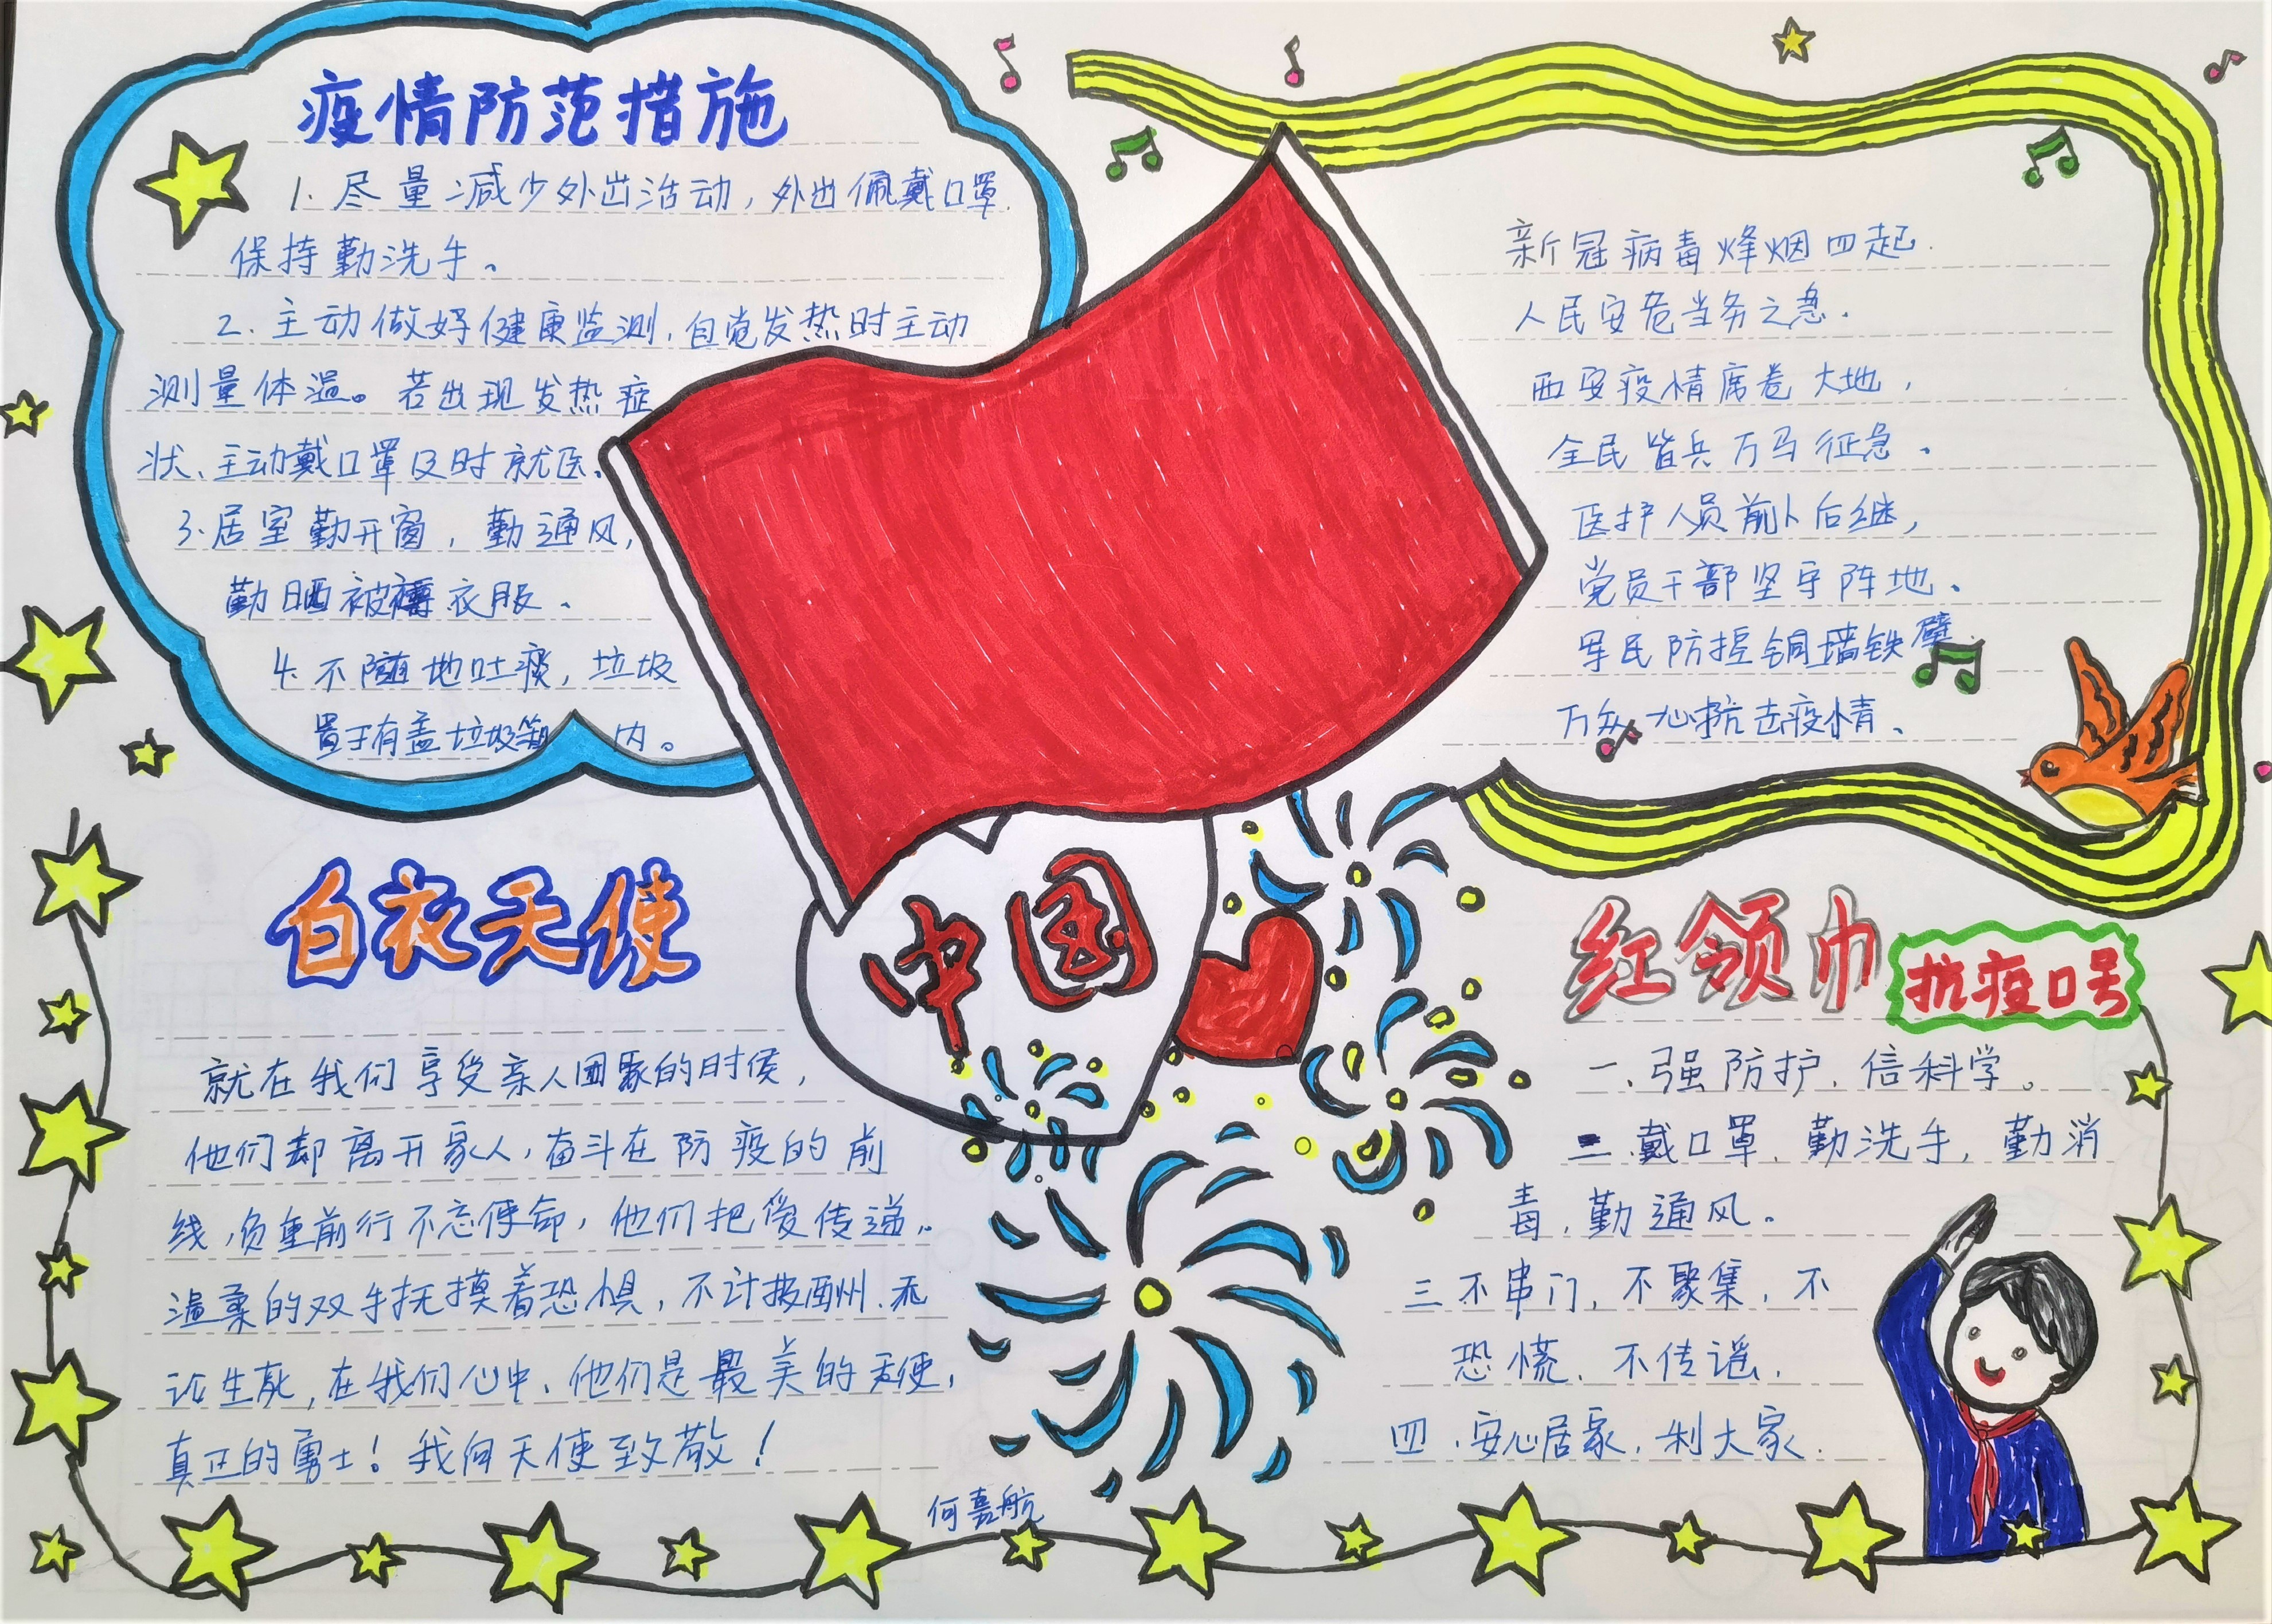 疫情防范措施
1.尽量减少外出活动，外出佩戴口罩.
保持勤洗手。
2.主动做好健康监测,自觉发热时主动
测量体温。若出现发热症
状、主动戴口罩及时就医、
3.居室勤开窗，勤通风，
勤晒被褥衣服、
4.不随地吐痰，垃圾
置于有盖垃圾箱内。
新冠病毒烽烟四起.
人民安危当务之急.
西安疫情席卷大地，
全民皆兵万马征急。
医护人员前卜后继，
党员干部坚守阵地。
军民防控铜墙铁壁.
万众一心抗击疫情、
白衣天使
就在我们享受亲人团聚的时候，
他们却离开家人，奋斗在防疫的前
线，负重前行不忘使命，他们把爱传递。
温柔的双手抚摸着恐惧，不计报酬、无
论生死，在我们心中、他们是最美的天使，
真正的勇士！我向天使致敬！
何嘉航
中国
红领巾抗疫口号
一、强防护、信科学。
二.戴口罩、勤洗手，勤消
毒，勤通风。
三不串门，不聚集，不
恐慌、不传谣.
四、安心居家,利大家.